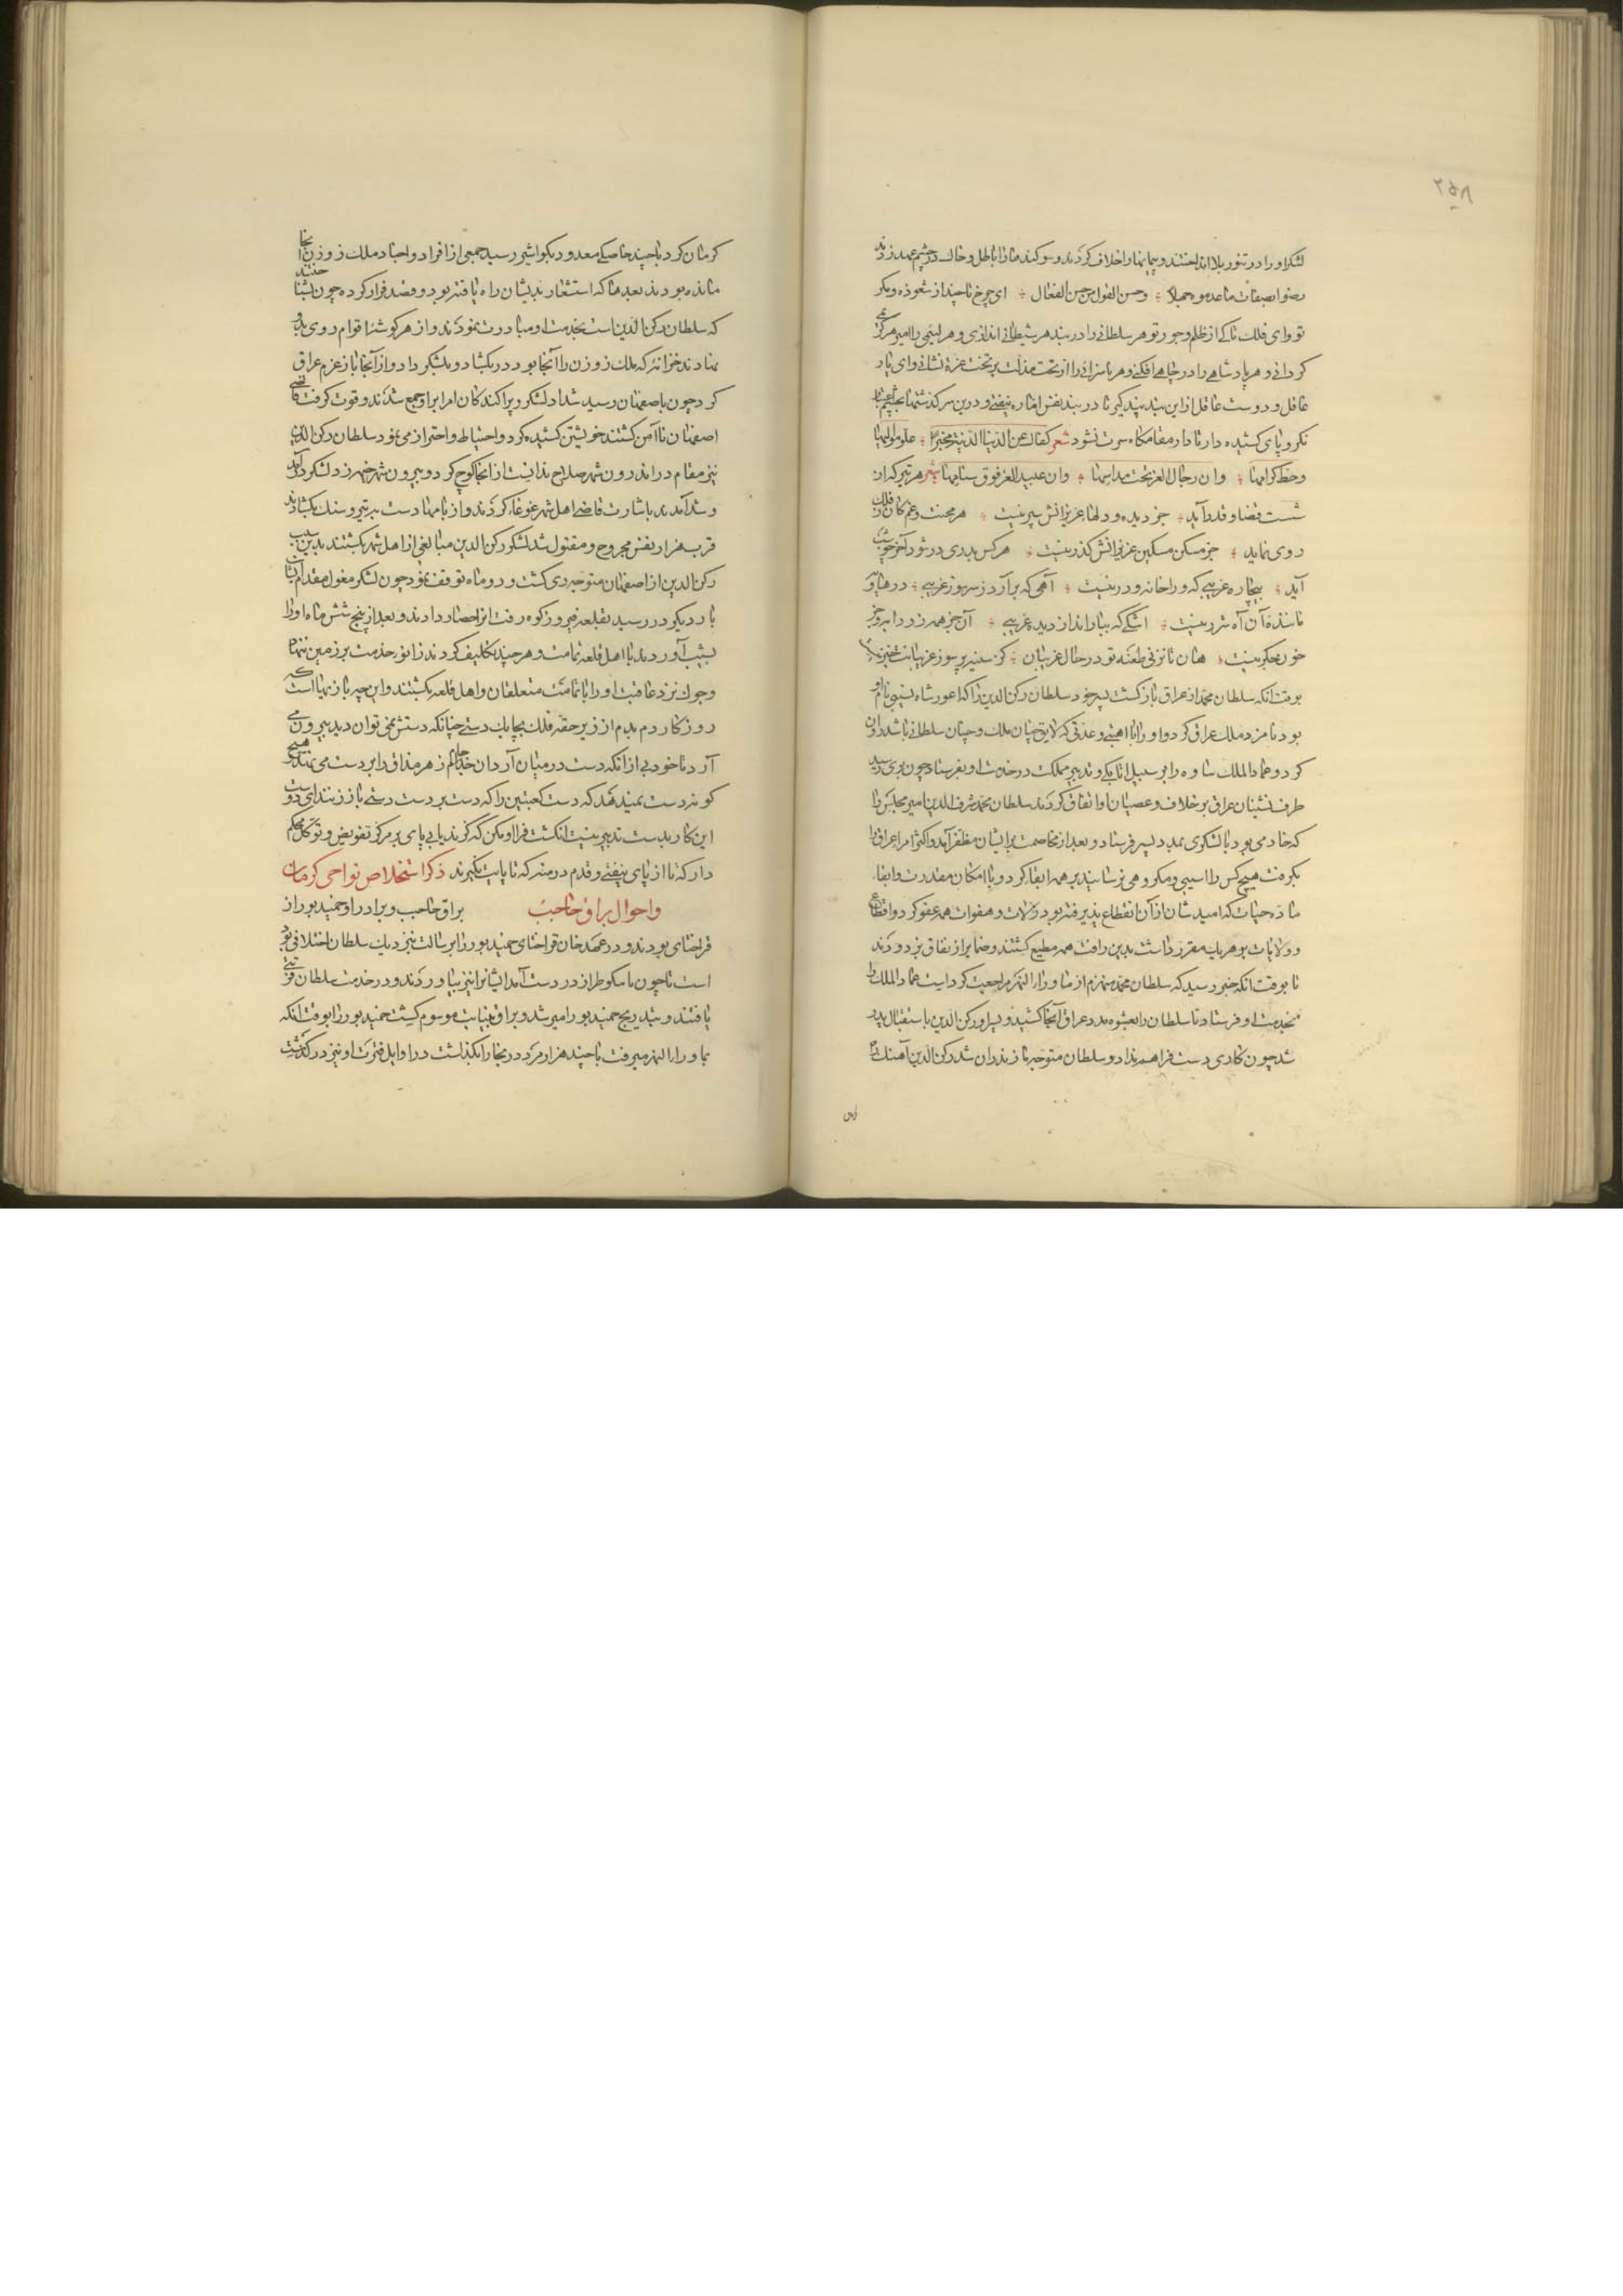 ۲۵۸
لشکر او را در تنور بلا انداختند و پیمانها را خلاف کردند و سوکند ما را باطل و خاک در چشم عهد زدند
رضوا بصفات ما عدموه جهلا وحسن القول من حسن الفعال ای چرخ تا چند از شعوذه و مکر
تو وای فلک تا کی از ظلم و جور تو هر سلطانی را در بند هر شیطانی اندازی و هر لئیمی را امیر هر کریمی
کردانی و هر پادشاهی را در چاهی افکنی و هر ناسزائی را از تخت مذلت بر تخت عزة نشانی وای یار
غافل و دوست عاقل ازین پند پند کیر تا در بند نفس اماره نیفتی و درین سرکذشتها بچشم
نکر و پای کشیده دار تا دار مقامکاه سرت نشود شعر کفاک عن الدنیا الدنیة مخبرا علو موالیها
وحط کرامها وان رجال العز تحت مداسها وان عبید العز فوق سنامها شعر هر تیر که از
شست قضا و قدر آید جز دیده و دلهاء عزیزانش سپر نیست هر محنت و غم کان ز فلک
روی نماید جز مسکن مسکین عزیزانش کذر نیست هر کس بدری در شود آخر چو شب
آید بیچاره غریبی که ورا خانه و در نیست آهی که برآرد ز سر سوز غریبی در
ماننده آن آه شرر نیست اشکی که ببارد از دیده غریبی آن جز همه زرد
خون جکر نیست هان تا نزنی طعنه تو در حال غریبان کز سینه پر سوز غریبانت خبر نیست
بوقت انکه سلطان محمد از عراق باز کشت پسر خود سلطان رکن الدین را که اغور شاه بستی نام او
بود نامزد ملک عراق کرد و او را با اهبتی و عدتی که لایق چنان ملک و چنان سلطانی باشد روان
کرد و عماد الملک ساوه را بر سبیل اتابکی و تدبیر مملکت در خدمت او بفرستاد چون بری رسید
طرف نشینان عراق بر خلاف و عصیان او اتفاق کردند سلطان محمد شرف الدین امیر مجلس را
که خادمی بود با لشکری بمدد پسر فرستاد و بعد از مخاصمت برایشان مظفر آمد و اکثر امراء عراق را
بکرفت هیچ کس را اسیبی و مکروهی نرسانید بر همه ابقا کرد و با امکان مقدرت وابقاء
ماده حیات که امید شان از آن انقطاع پذیرفته بود زلات و هفوات همه عفو کرد و اقطاع
و ولایات بر هر یک مقرر داشت بدین رافت همه مطیع کشتند و ضمایر از نفاق بزدودند
تا بوقت انکه خبر رسید که سلطان محمد منهزم از ماوراء النهر مراجعت کردست عماد الملک را
بخدمت او فرستاد تا سلطان را بعشوه مدد عراق آنجا کشید و پسر او رکن الدین باستقبال پدر
شد چون کاری دست فراهم نداد و سلطان متوجه مازندران شد رکن الدین آهنک
کرمان کرد با چند خاصکی معدود بکواشیر رسید جمعی از افراد و احناد ملک زوزن آنجا
مانده بودند بعدما که استشعار بدیشان راه یافته بود و قصد فرار کرده چون بشناختند
که سلطان رکن الدین است بخدمت او مبادرت نمودند و از هر کوشه اقوام روی بدو
نهادند خزانه که ملک زوزن را آنجا بود در بکشاد و بلشکر داد و از آنجا باز عزم عراق
کرد چون باصفهان رسید شداد لشکر و پراکندکان امرا برو جمع شدند و قوت کرفت قاضی
اصفهان نا آمن کشتند خویشتن کشیده کرد و احتیاط و احتراز می نمود سلطان رکن الدین
نیز مقام در اندرون شهر صلاح ندانست از انجا کوچ کرد و بیرون شهر خیمه زد لشکر در آمد
و شد آمدند باشارت قاضی اهل شهر غوغا کردند و از بامها دست بتیر و سنک بکشادند
قرب هزار نفس مجروح و مقتول شد لشکر رکن الدین مبالغی از اهل شهر بکشتند بدین سبب
رکن الدین از اصفهان متوجه ری کشت و دو ماه توقف نمود چون لشکر مغول مقدم ایشان
بار دیکر در رسید بقلعه فیروزکوه رفت انرا حصار دادند و بعد از پنج شش ماه او را
بشیب آوردند با اهل قلعه تمامت و هر چند تکلیف کردند زانو خدمت بر زمین ننهاد
وجوک نزد عاقبت او را با تمامت متعلقان و اهل قلعه بکشتند و این چه بازیهاست که
روزکار دم بدم از زیر حقه فلک بچابک دستی چنانکه دستش نمی توان دید بیرون می
آرد تا خود بی از انکه دست در میان آرد ان جام زهر مذاق را بر دست می نهد هیچ
کونه دست نمیدهد که دست کعبتین را که دست بر دست دستی باز زنند ای دوست
این کار بدست تدبیر نیست انکشت فرا او مکن که کزند یابی پای بر مرکز تفویض و توکل محکم
دار که تا از پای نیفتی و قدم در منه که تا پایت نکیرند ذکر استخلاص نواحی کرمان
و احوال براق حاجب براق حاجب و برادر او حمید بور از
قراختای بودند و در عهد خان قراختای حمید بور را برسالت نزدیک سلطان اختلافی بود
است تا چون تاینکو طراز در دست آمد ایشانرا نیز بیاوردند و در خدمت سلطان قربتی
یافتند و بتدریج حمید بور امیر شد و براق بنیابت موسوم کشت حمید بور را بوقت انکه
بماوراء النهر میرفت با چند هزار مرد در بخارا بکذاشت در اوایل فترت او نیز در کذشت